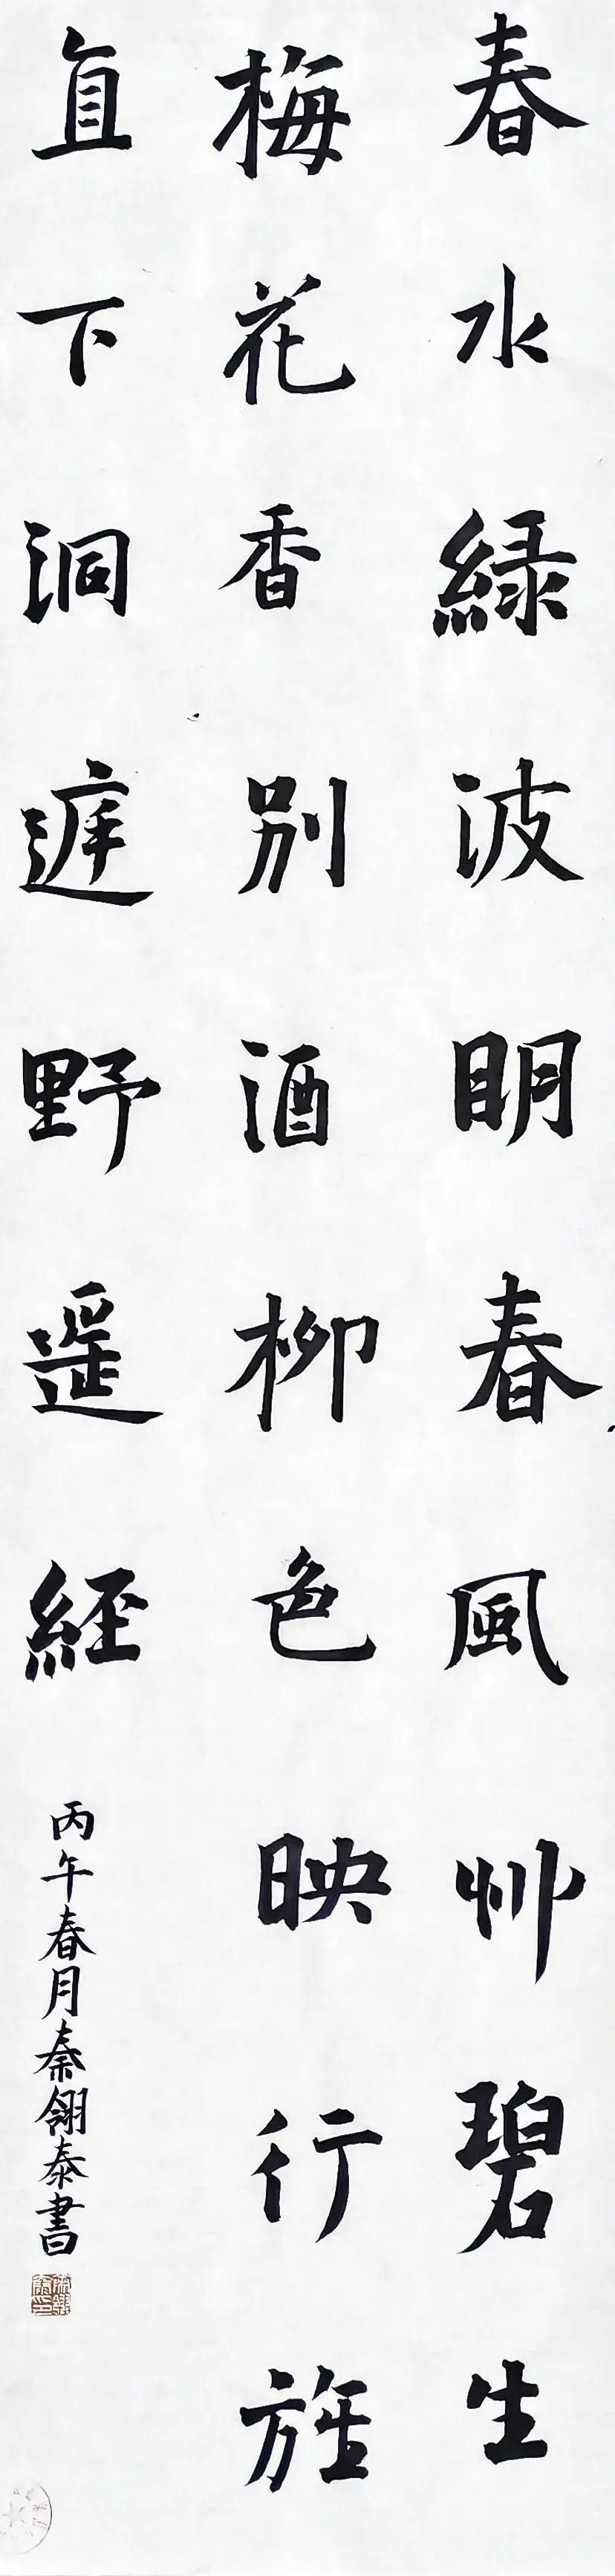 春水緑波眀春風艸碧生
梅花香別酒柳色映行旌
直下洞野遥経
丙午春月秦泰書